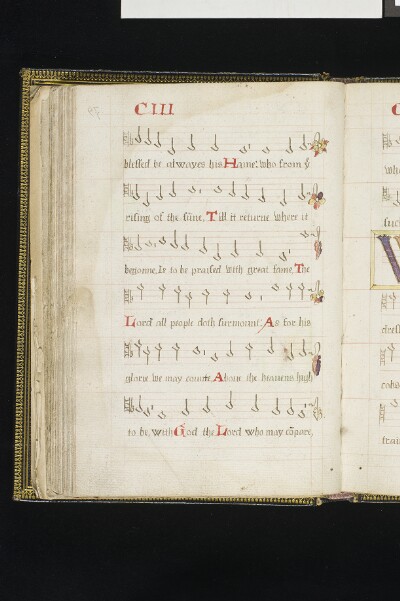 CIII
blessed be alwayes his Name: who from yͤ
rising of the sūne, Till it returne where it
begonne, Is to be praised with great fame, The
Lord all people doth surmount: As for his
glorie we may counte Aboue the heauens high
to be, with God the Lord who may cōpare,
C